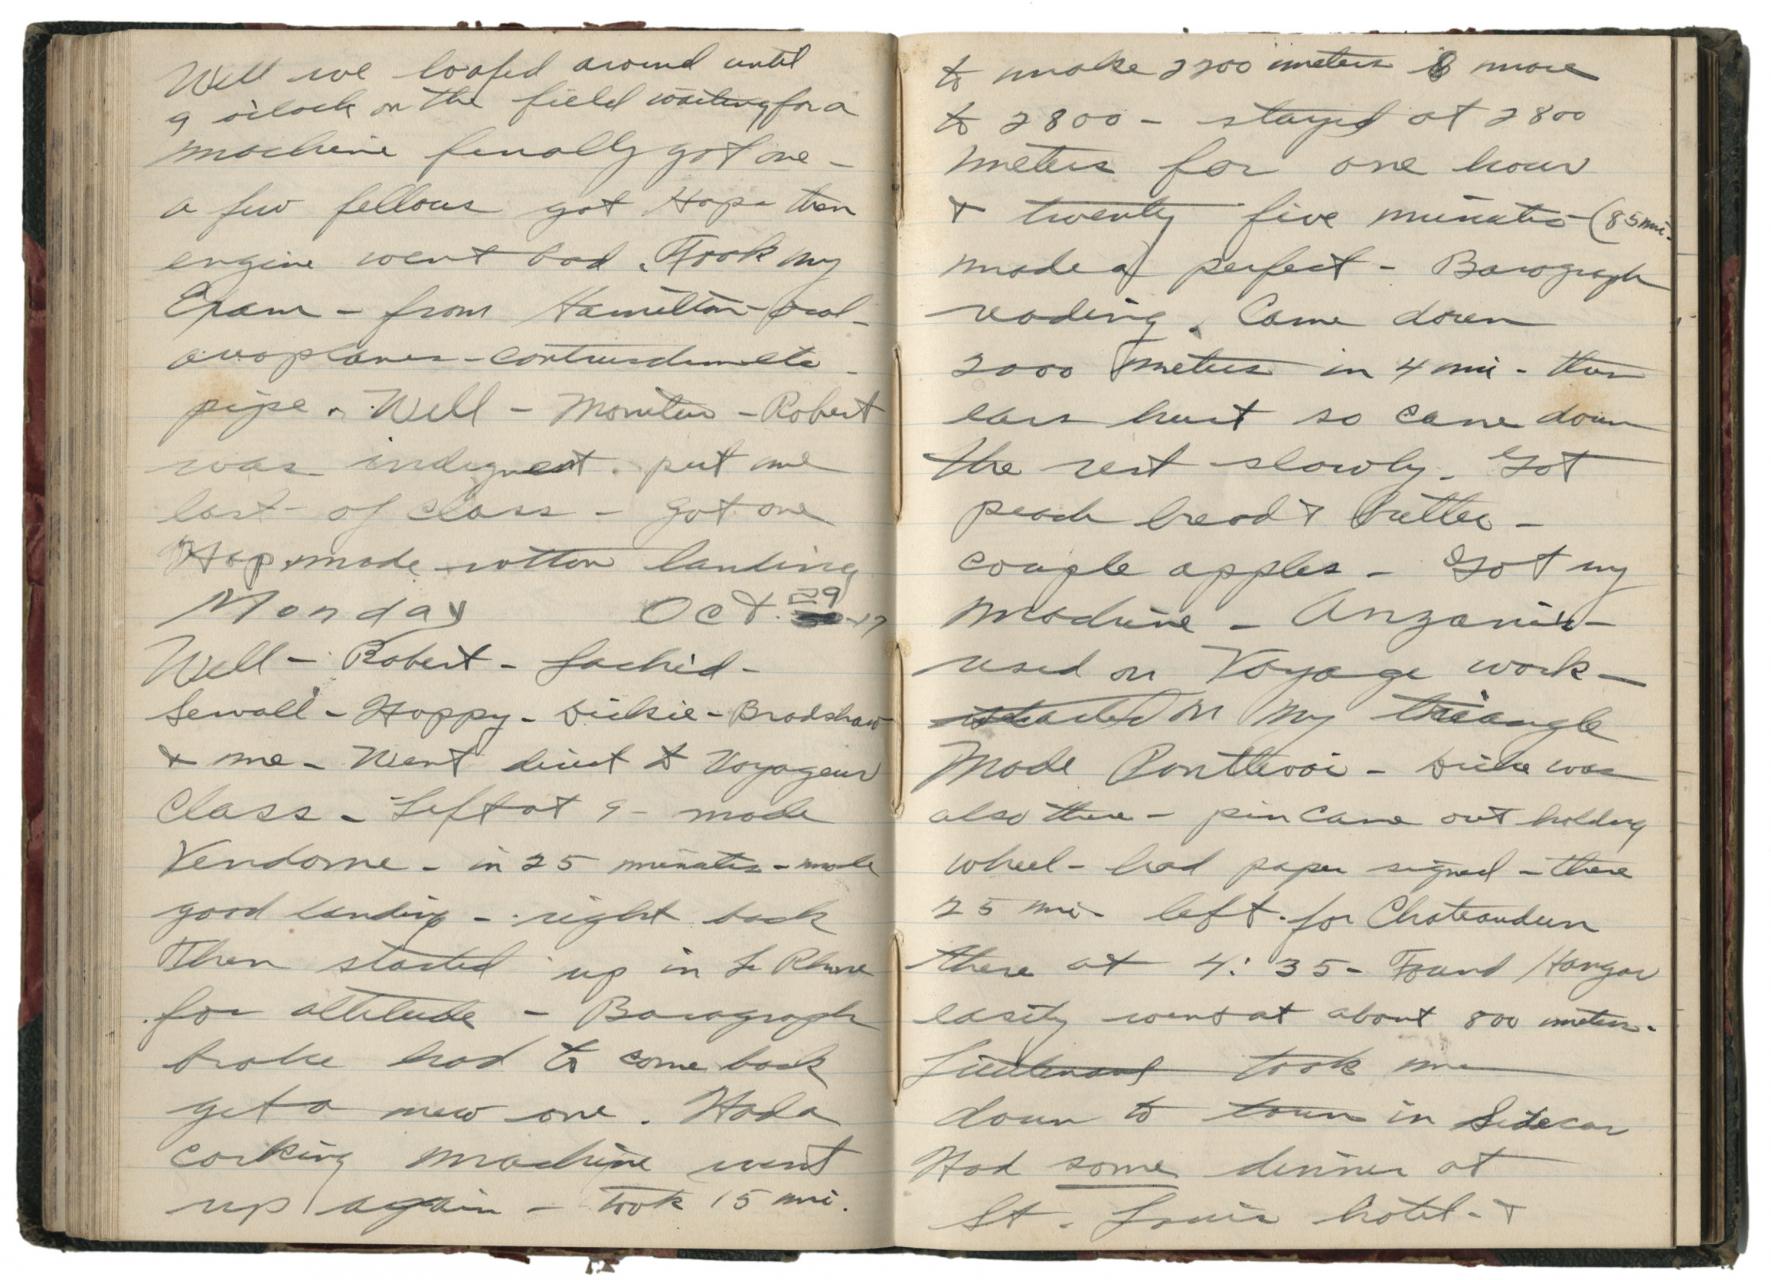 Well we loafed around until
9 o'clock on the field waiting for a
machine finally got one -
a few fellows got Hops then
engine went bad. Took my
Exam - from Hamilton - oral -
aeroplanes -
pipe. Well - Moniteur - Robert
was indignant. put me
last of class - got one
Hop. made rotten landing
Monday Oct. 29 - 17
Well - Robert -
Sewall - Hoppy - Dickie - Bradshaw
& me - Went direct to Voyageur
Class - Left at 9 - made
Vendome - in 25 minutes - made
good landing - right back
Then started up in Le Rhone
for altitude - Barograph
broke had to come back
get a new one. Had a
corking machine went
up again - took 15 mi.
to make 2200 meters & more
to 2800 - stayed at 2800
meters for one hour
& twenty five minutes - (85 mi -
made a perfect - Barograph
reading. Came down
2000 meters in 4 mi - then
ears hurt so came down
the rest slowly. Got
peach bread & butter -
couple apples - Got my
machine - Anzani -
used on Voyage work -
started on my triangle
Made Pontlevoi - Dickie was
also there - pin came out holding
wheel - had paper signed - there
25 mi - left for Chateaudun
there at 4:35 - Found Hangar
easily went at about 800 meters -
Lieutenant took me
down to town in Sidecar
Had some dinner at
St. Louis hotel - &